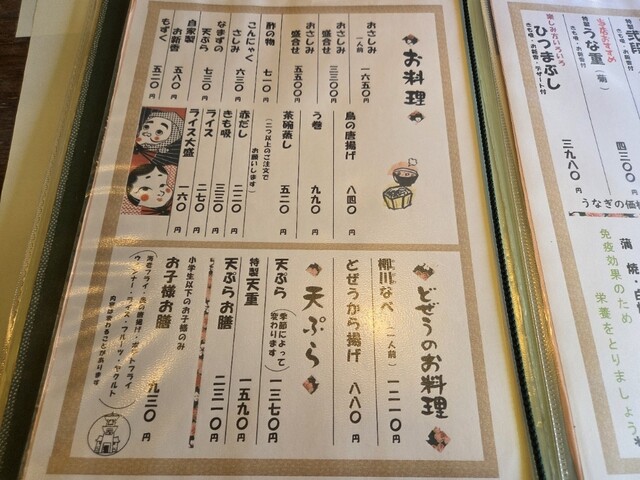 お料理
おさしみ 一人前 一六五〇円
おさしみ盛合せ 三三〇〇円
おさしみ盛合せ 五五〇〇円
酢の物 七一〇円
こんにゃくさしみ 六三〇円
なまずの天ぷら 七三〇円
自家製お新香 五八〇円
もずく 五二〇円
鳥の唐揚げ 八四〇円
う巻 九九〇円
茶碗蒸し 五二〇円
(二つ以上のご注文でお願いします)
赤だし 二二〇円
きも吸 三三〇円
ライス 二七〇円
ライス大盛 一六〇円
どぜうのお料理
柳川なべ (一人前) 一二一〇円
どぜうから揚げ 八八〇円
天ぷら
天ぷら (季節によって変わります) 一三七〇円
特製天重 一五九〇円
天ぷらお膳 二三一〇円
小学生以下のお子様のみ
お子様お膳 九三〇円
(海老フライ・鳥の唐揚げ・ポテトフライ
ウインナー・ライス・フルーツ・ヤクルト
内容は変わることがあります
四三〇〇円
うな重(菊)
きも吸・お新香付
三九八〇円
楽しみ方いろいろ
ひつまぶし
きも吸・お新香・デザート付
うなぎの価格
免疫効果のため
栄養をとりましょう